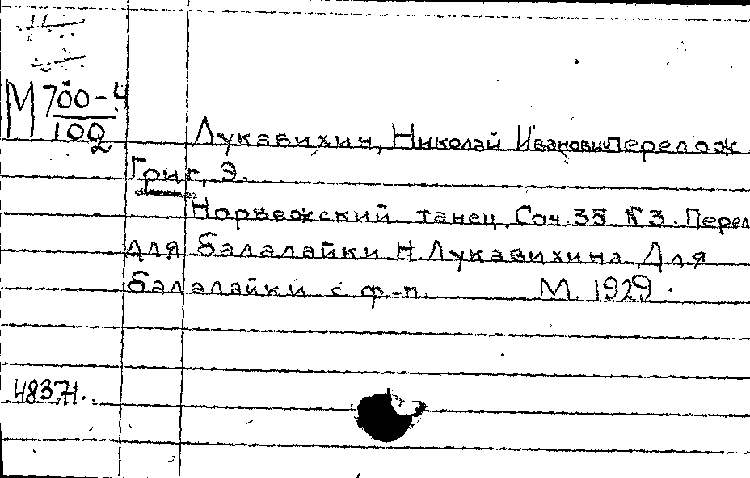 М 700-4
100
Лукавихин, Николай Иванович перелож
Григ, Э.
Норвежский танец. Соч. 35 №3. Перел
для балалайки Н Лукавихина Для
балалайки с ф-п. М. 1929.
48371.